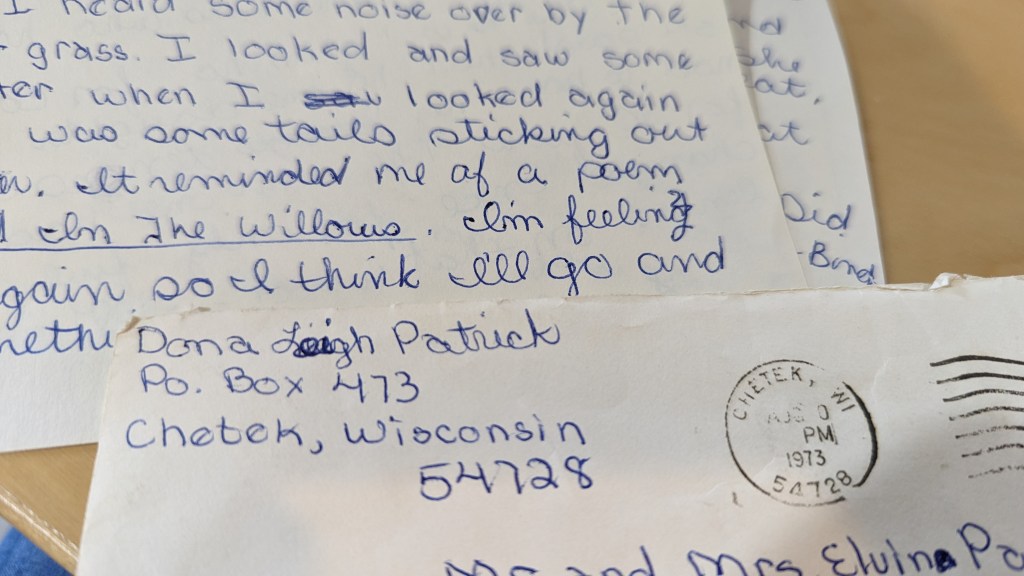 I heard some noise over by the
grass. I looked and saw some
when I looked again
was some tails sticking out
It reminded me of a poem
In The Willows. I'm feeling
so I think I'll go and
Dona Leigh Patrick
Po. Box 473
Chetek, Wisconsin
54728
CHETEK, WI
PM
1973
54728
Mr and Mrs Elvin
she
at
Did